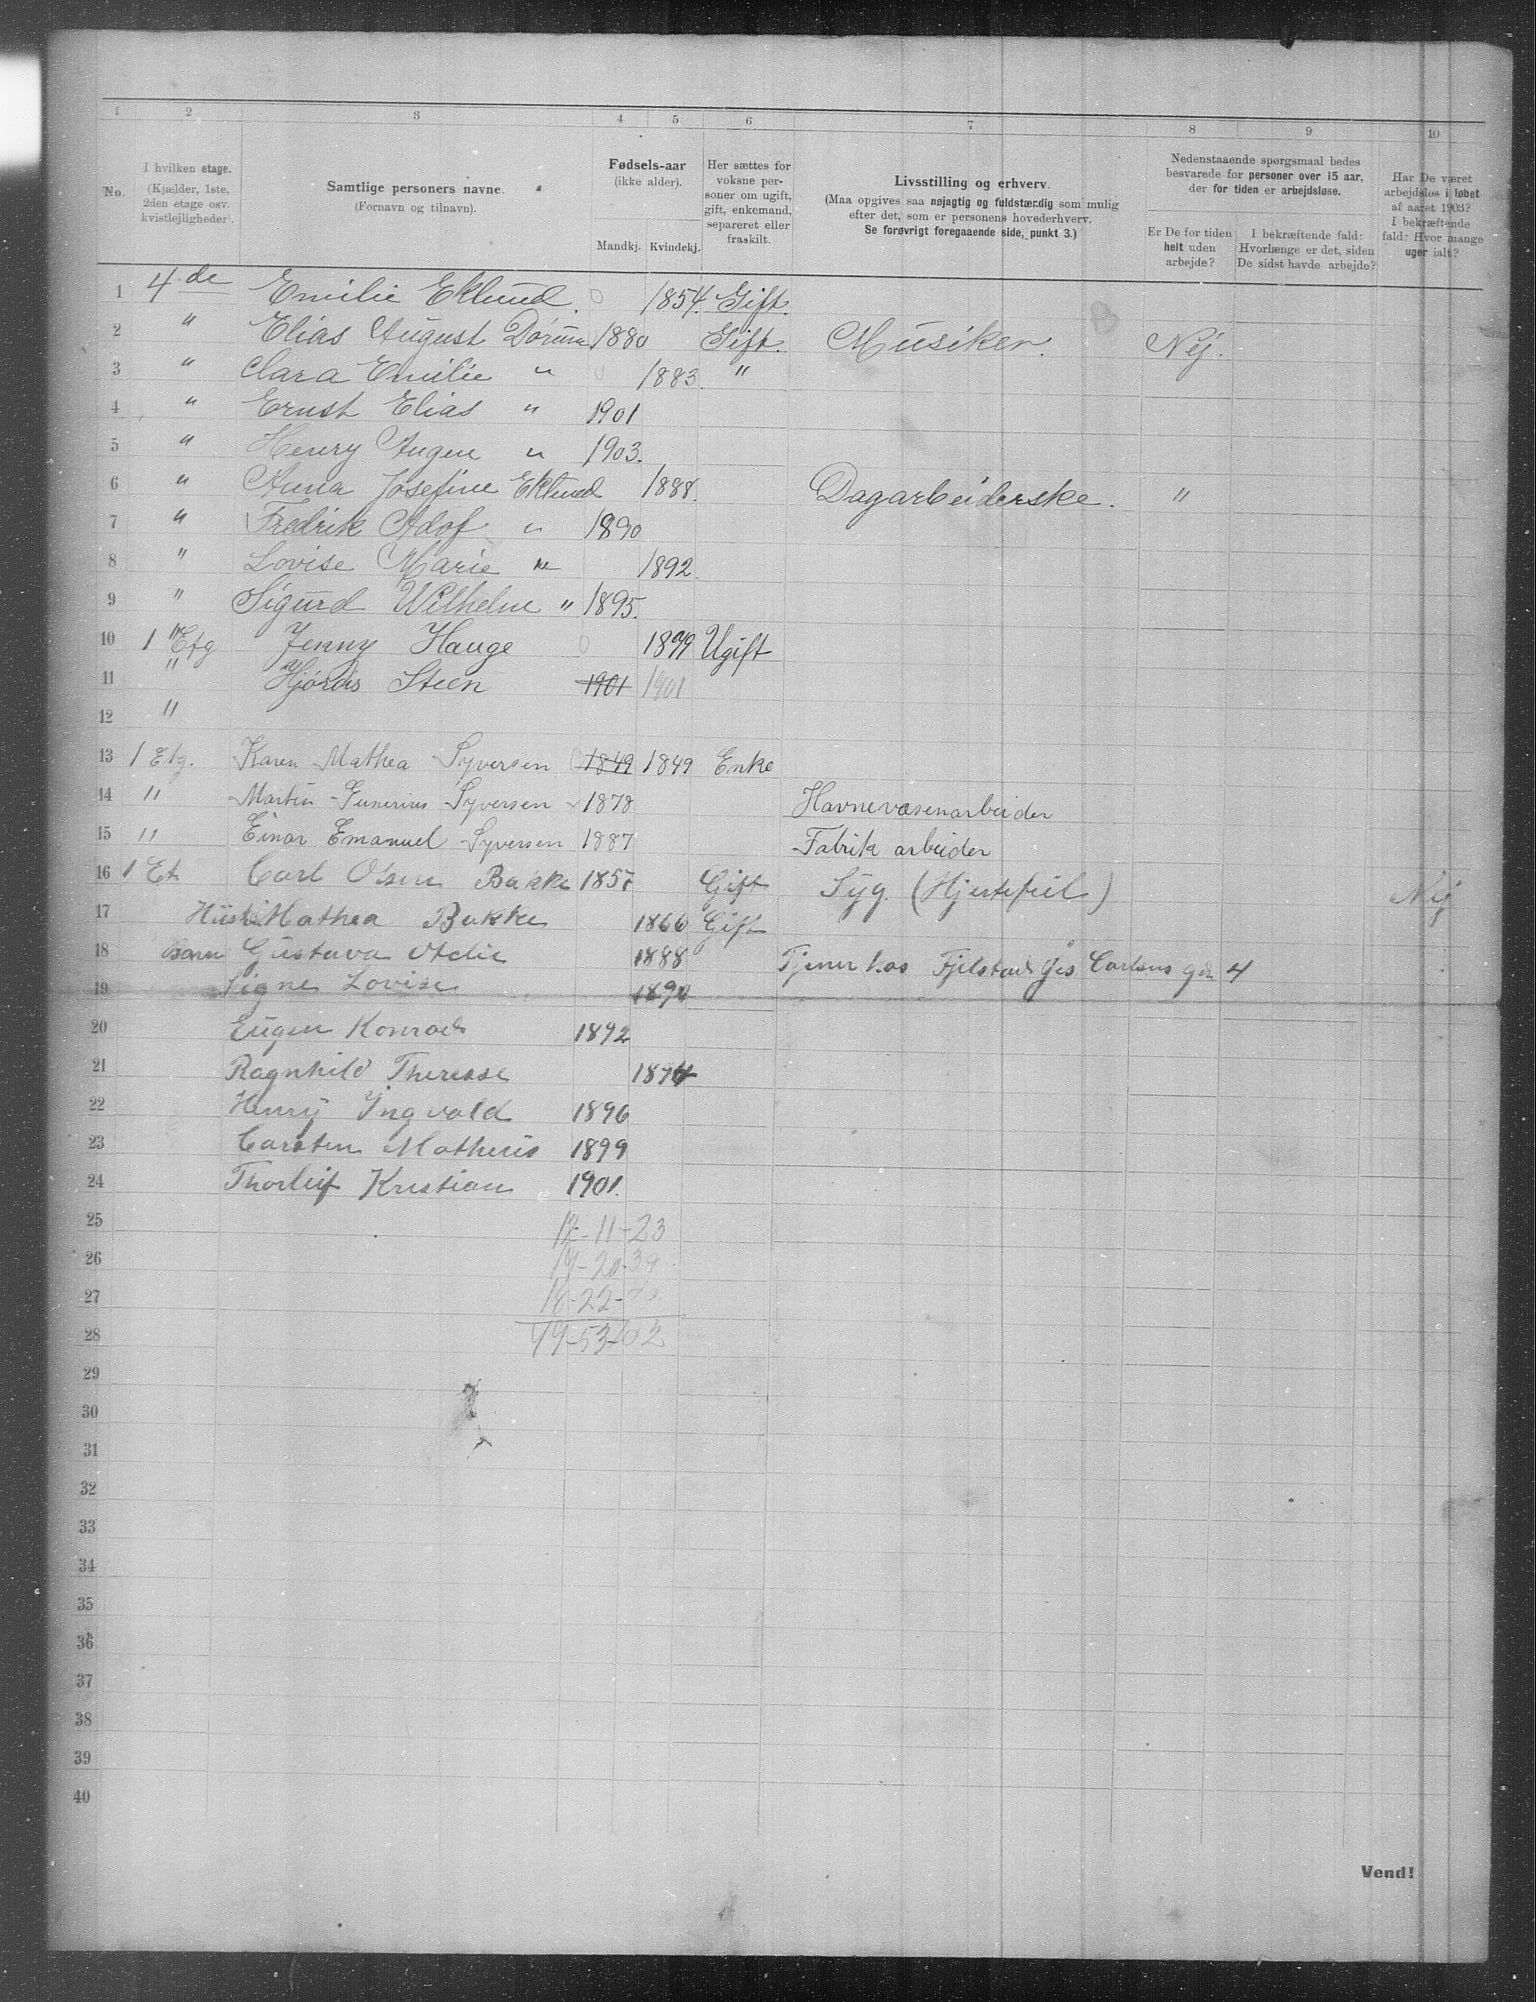 1 2 3 4 5 6 7 8 9 10
No.
I hvilken etage.
(Kjælder, 1ste, 2den etage osv. kvistlejligheder).
Samtlige personers navne.
(Fornavn og tilnavn).
Fødsels-aar
(ikke alder).
Mandkj. Kvindekj.
Her sættes for voksne personer om ugift, gift, enkemand, separeret eller fraskilt.
Livsstilling og erhverv.
(Maa opgives saa nøjagtig og fuldstændig som mulig efter det, som er personens hovederhverv.
Se forøvrigt foregaaende side, punkt 3.)
Nedenstaaende spørgsmaal bedes besvarede for personer over 15 aar, der for tiden er arbejdsløse.
Er De for tiden helt uden arbejde?
I bekræftende fald: Hvorlænge er det, siden De sidst havde arbejde?
Har De været arbejdsløs i løbet af aaret 1903? I bekræftende fald: Hvor mange uger ialt?
1 4de Emilie Eklund. 0 1854. Gift.
2 " Elias August Dorum 1880 Gift. Musiker. Nej.
3 " Clara Emilie " 0 1883. "
4 " Ernst Elias " 1901
5 " Henry Augen " 1903.
6 " Anna Josefine Eklund 1888. Dagarbeiderske. "
7 " Fredrik Adof " 1890
8 " Lovise Marie " 1892
9 " Sigurd Wilhelm " 1895.
10 1 Etg Jenny Hauge 0 1879 Ugift
11 " Hjørdis Steen 1901 1901
12 "
13 1 Etg. Karen Mathea Syversen 0 1849 1849 Enke
14 " Martin Gunerius Syversen 1878 Havnevæsenarbeider
15 " Einar Emanuel Syversen 1887 Fabrik arbeider
16 1 Et Carl Olsen Bakke 1857 Gift Syg. (Hjertefeil) Nej
17 Mathea Bakke 1866 Gift
18 Barn Gustava Adelie 1888 Tjener hos Fjelstad Carlsens gd 4
19 Signe Lovise 1890
20 Eugen Konrad 1892
21 Ragnhild Theresse
22 Henry Ingvald 1896
23 Carsten Matheus 1899
24 Thorleif Kristian 1901.
25 12-11-23
26 19-20-39
27 18-22-40
28 49-53-102
29
30
31
32
33
34
35
36
37
38
39
40
Vend!